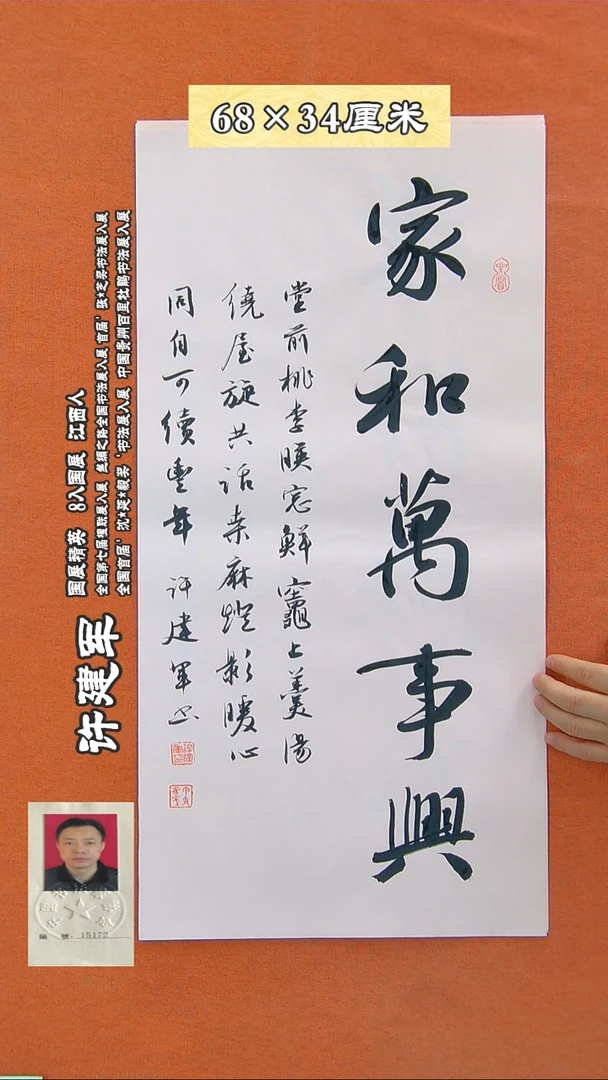 68×34厘米
家和萬事興
堂前桃李暎窓鮮竈上羹湯
繞屋旋共話桒麻燈影暖心
同自可續豐年 許建軍书
许建军
国展精英 8入国展 江西人
全国第七届楹联展入展 丝绸之路全国书法展入展 首届'张*芝奖书法展入展
全国首届'沈*延*毅奖'书法展入展 中国贵州百里杜鹃书法展入展
編 號: 15172